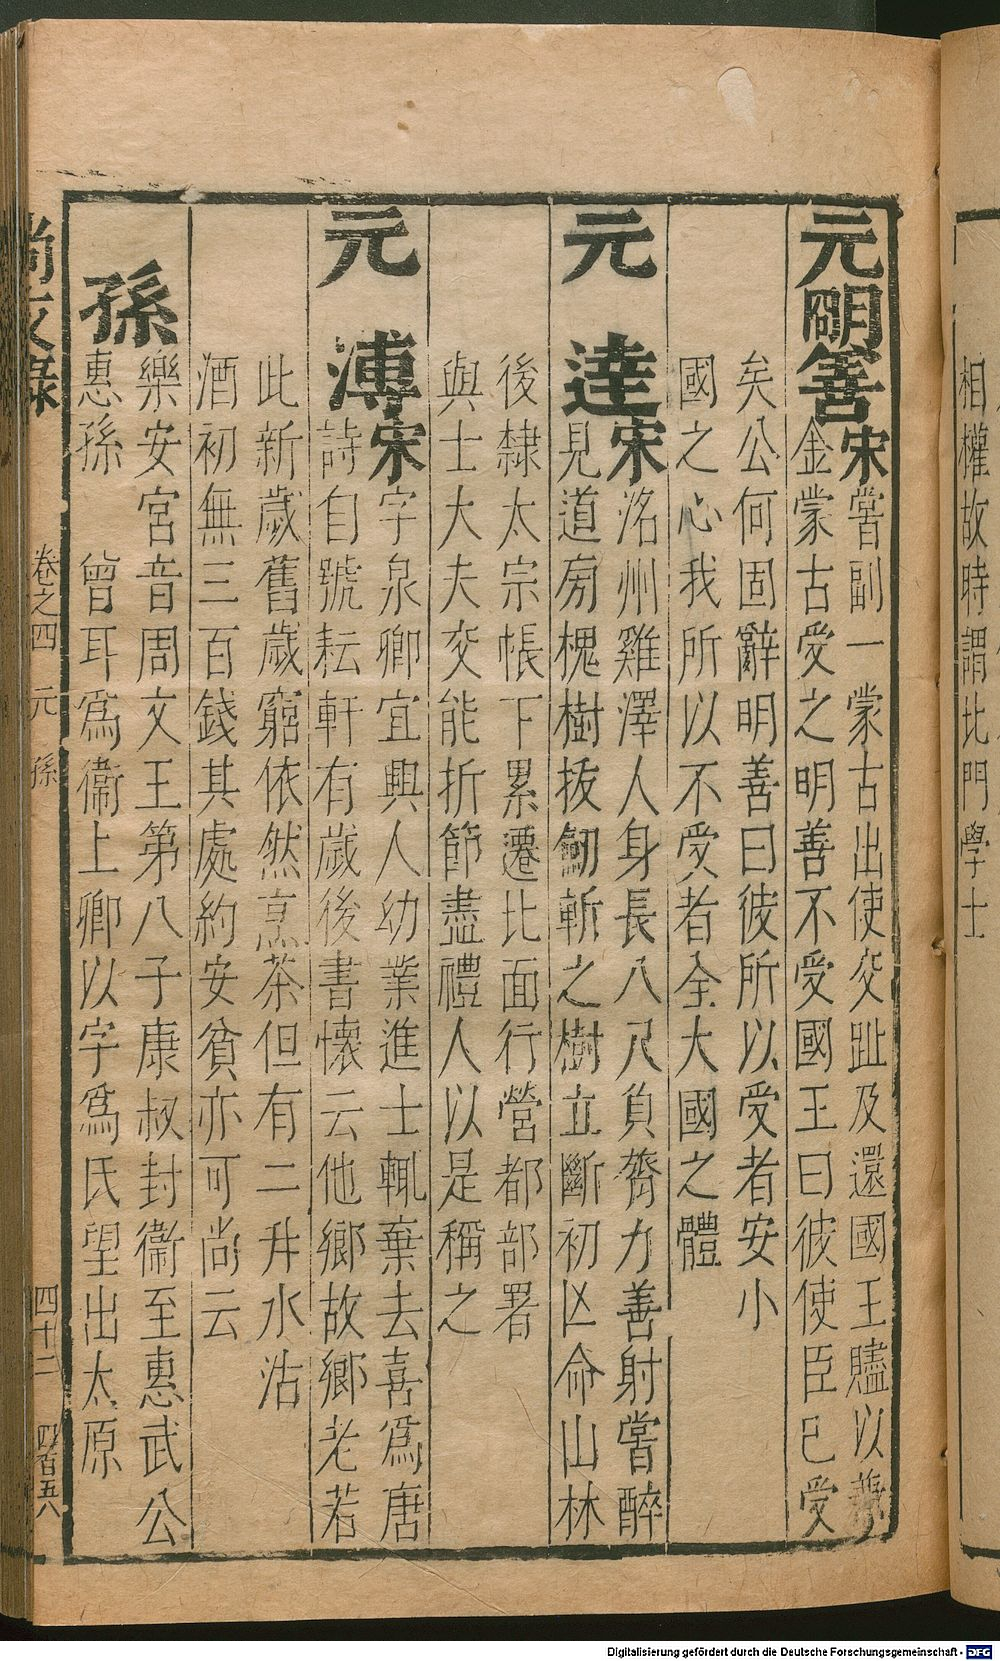 元明善宋嘗副一蒙古出使交趾及還國王贐以
金蒙古受之明善不受國王曰彼使臣已受
矣公何固辭明善曰彼所以受者安小
國之心我所以不受者全大國之體
元達宋洺州雞澤人身長八尺負膂力善射嘗醉
見道房槐樹拔劒斬之樹立斷初亡命山林
後隸太宗帳下累遷比面行營都部署
與士大夫交能折節盡禮人以是稱之
元溥宋字泉卿宜興人幼業進士輒棄去喜為唐
詩自號耘軒有歲後書懷云他鄉故鄉老若
此新歲舊歲窮依然烹茶但有二井水沽
酒初無三百錢其處約安貧亦可尚云
孫樂安宮音周文王第八子康叔封衞至惠武公
惠孫 曾耳為衞上卿以字為氏望出太原
尚友錄 卷之四 元 孫 四十二 四百五八
相權故時謂北門學士
Digitalisierung gefördert durch die Deutsche Forschungsgemeinschaft - DFG